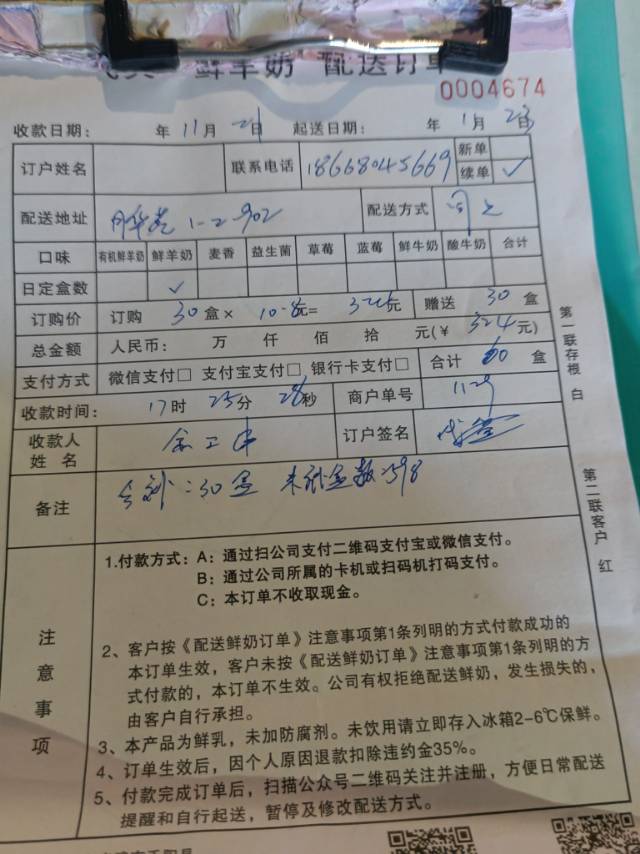 鲜羊奶 配送订单
0004674
收款日期： 年 11月 日 起送日期： 年 1月 日
订户姓名 联系电话 18668045669 新单
续单 ✓
配送地址 1-2-902 配送方式
口味 有机鲜羊奶 鲜羊奶 麦香 益生菌 草莓 蓝莓 鲜牛奶 酸牛奶 合计
日定盒数 ✓
订购价 订购 30 盒× 10.8元= 元 赠送 30 盒
总金额 人民币： 万 仟 佰 拾 元(￥ 324元)
支付方式 微信支付□ 支付宝支付□ 银行卡支付□ 合计 60 盒
收款时间： 17时 25分 28秒 商户单号 1129
收款人姓名 订户签名
备注 ：30盒
注意事项
1.付款方式：A：通过扫公司支付二维码支付宝或微信支付。
B：通过公司所属的卡机或扫码机打码支付。
C：本订单不收取现金。
2、客户按《配送鲜奶订单》注意事项第1条列明的方式付款成功的
本订单生效，客户未按《配送鲜奶订单》注意事项第1条列明的方
式付款的，本订单不生效。公司有权拒绝配送鲜奶，发生损失的，
由客户自行承担。
3、本产品为鲜乳，未加防腐剂。未饮用请立即存入冰箱2-6℃保鲜。
4、订单生效后，因个人原因退款扣除违约金35%。
5、付款完成订单后，扫描公众号二维码关注并注册，方便日常配送
提醒和自行起送，暂停及修改配送方式。
第一联存根 白
第二联客户 红